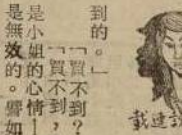 到的。」
「買不到?
「買不到,
是小姐的心情！
是無效的。譬如
載連